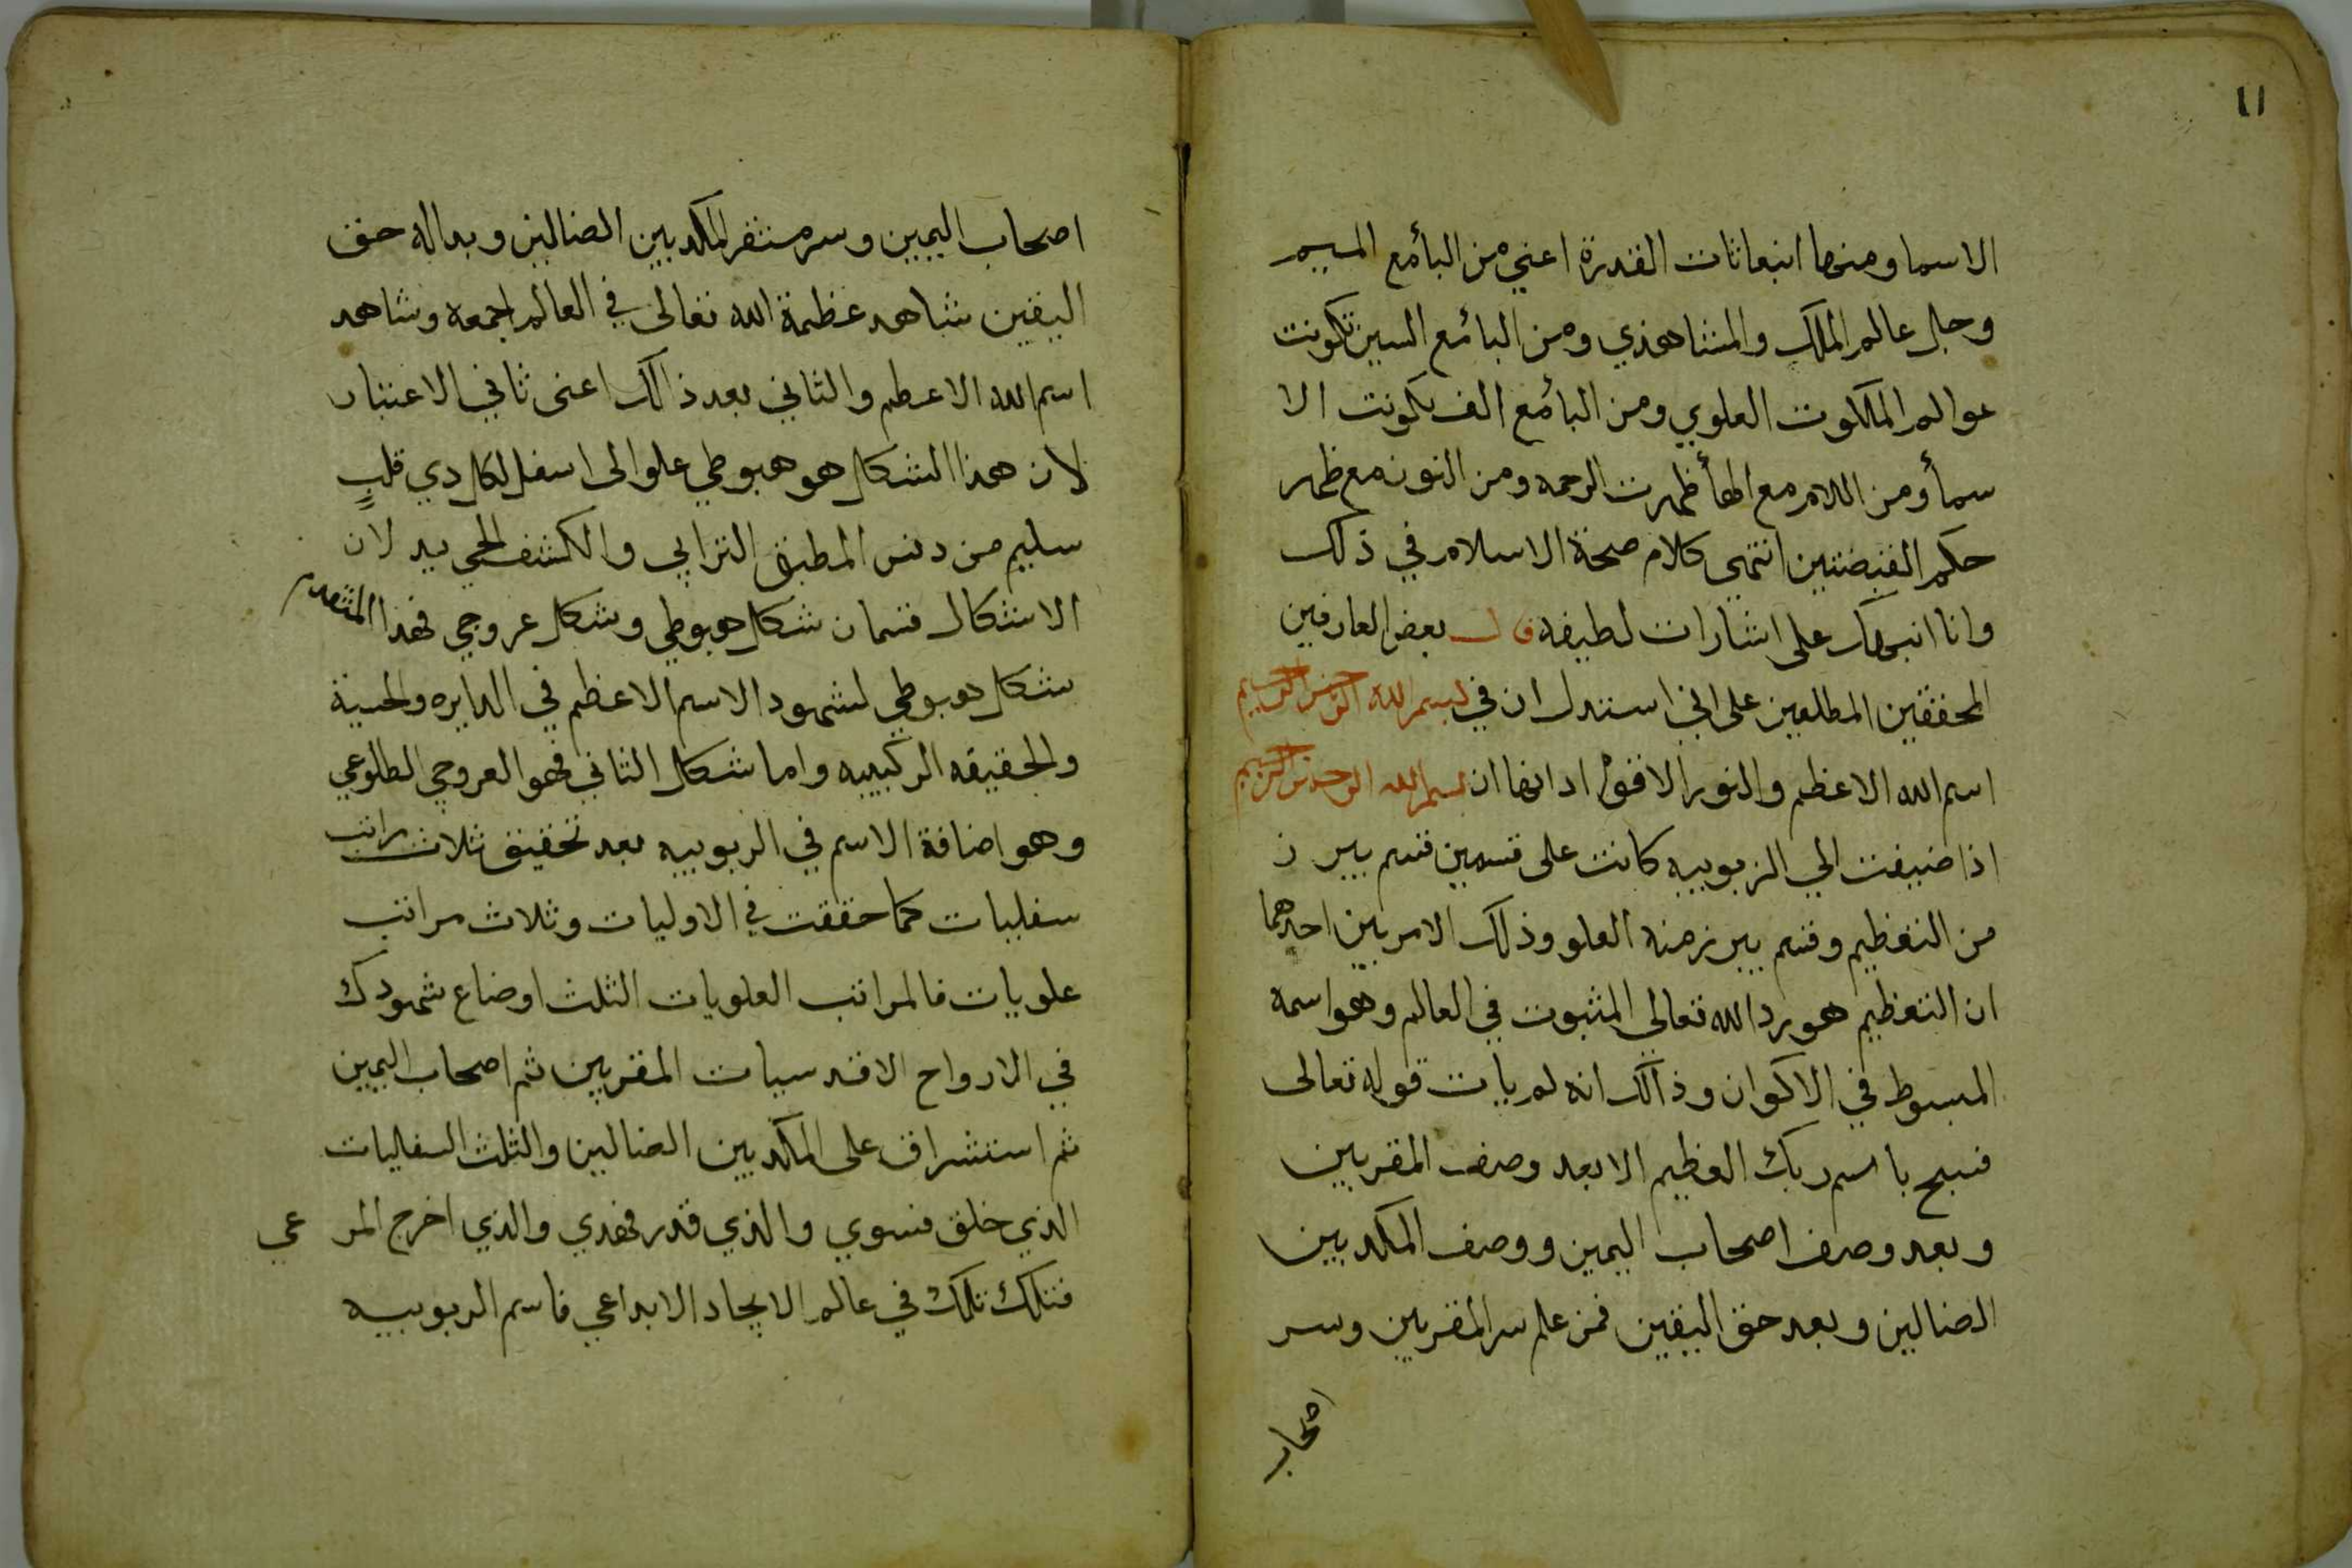 ١١
الاسما ومنها انبعاثات القدرة اعني من البأ مع الميم
وجل عالم الملك والمشاهدي ومن البا مع السين تكونت
عوالم الملكوت العلوي ومن البأ مع الف تكونت الا
سمأ ومن اللام مع الهأ ظهرت الرحمه ومن النون مع ظهر
حكم القبضتين انتهى كلام صحة الاسلام في ذلك
وانا انبهك على اشارات لطيفه قال بعض العارفين
المحققين المطلعين على اني استدل ان في بسم الله الرحمن الرحيم
اسم الله الاعظم والنور الاقوم اد انها ان بسم الله الرحمن الرحيم
اذا ضيفت الي الربوبيه كانت على قسمين قسم يبرز
من التعظيم وقسم يبرز منه العلو وذلك الامريين احدهما
ان التعظيم هو برد الله تعالي المثبوت في العالم وهو اسمه
المبسوط في الاكوان وذالك انه لم يات قوله تعالى
فسبح باسم ربك العظيم الا بعد وصف المقربين
وبعد وصف اصحاب اليمين ووصف المكدبين
الضالين وبعد حق اليقين فمن علم سر المقربين وسر
اصحاب
اصحاب اليمين وسر مستقر المكدبين الضالين وبداله حق
اليقين شاهد عظمة الله تعالى في العالم اجمعه وشاهد
اسم الله الاعظم والثاني بعد ذالك اعنى ثاني الاعتبار
لان هذا الشكل هو هبوطي علو الى اسفل لكل دي قلب
سليم من دنس المطبق الترابي والكشف الحجي بيد لان
الاشكال قسمان شكل هبوطي وشكل عروجي فهذا المتقدم
شكل هبوطي لشهود الاسم الاعظم في الدايره والحسية
والحقيقه الركيبيه واما شكل الثاني فهو العروجي الطلوعي
وهو اضافة الاسم في الربوبيه بعد تحقيق ثلاث مراتب
سفليات كما حققت في الاوليات وثلاث مراتب
علويات فالمراتب العلويات الثلث اوضاع شهودك
في الارواح الاقدسيات المقربين ثم اصحاب اليمين
ثم استشراق على المكدبين الضالين والثلث السفليات
الذي خلق فسوي والذي قدر فهدي والذي اخرج المرعي
فتلك تلك في عالم الايجاد الابداعي فاسم الربوبيه